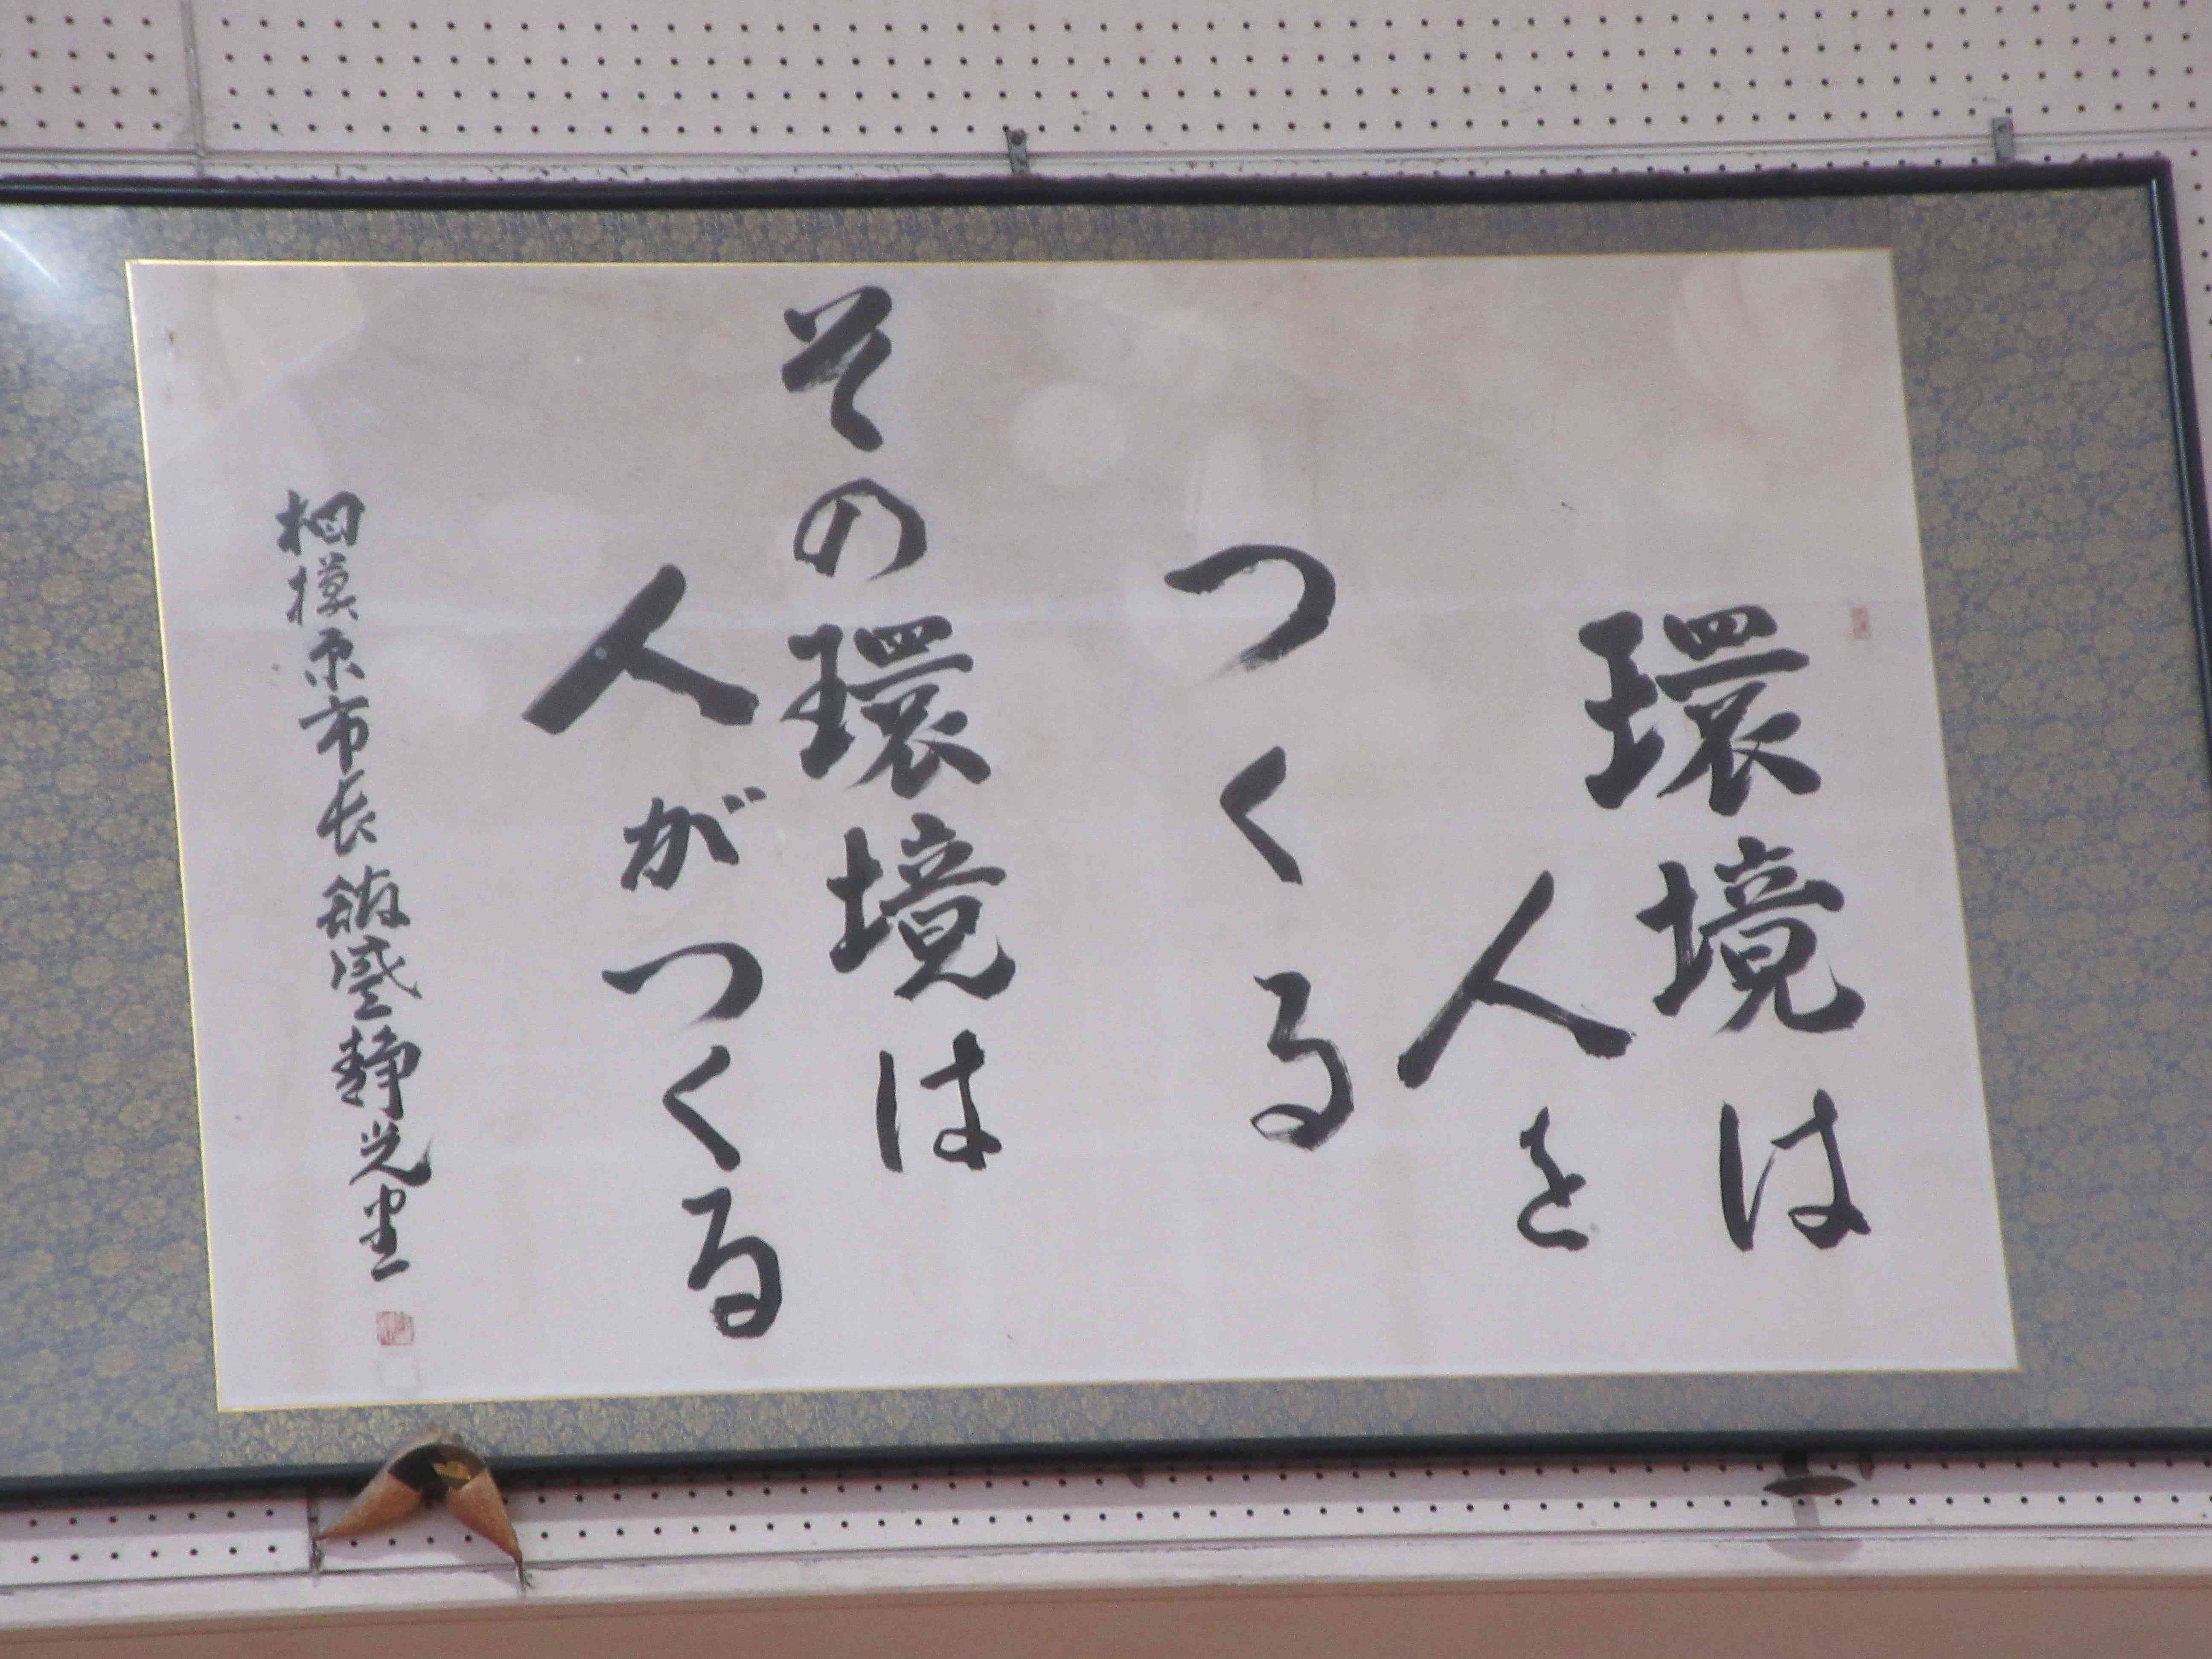 環境は
人を
つくる
その環境は
人がつくる
相模原市長 舘盛静光書